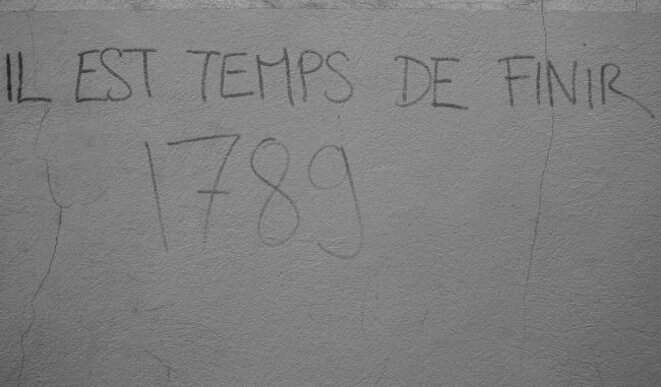 IL EST TEMPS DE FINIR
1789